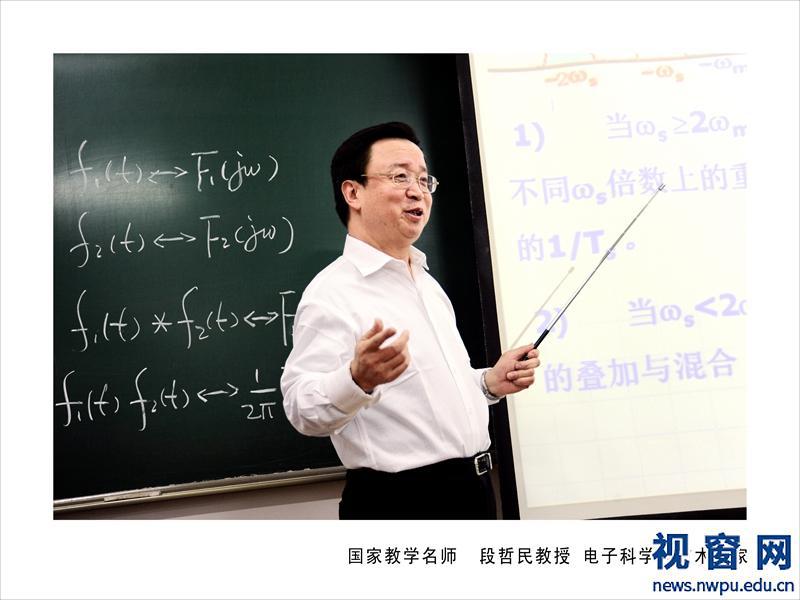 f₁(t) ↔ F₁(jω)
f₂(t) ↔ F₂(jω)
f₁(t) * f₂(t) ↔ F
f₁(t) f₂(t) ↔ 1/2π
-2ωs -ωs -ωm
1) 当ωs≥2ωm
不同ωs倍数上的重
的1/Ts。
2) 当ωs<2ω
的叠加与混合
国家教学名师 段哲民教授 电子科学 术 家
视窗网
news.nwpu.edu.cn